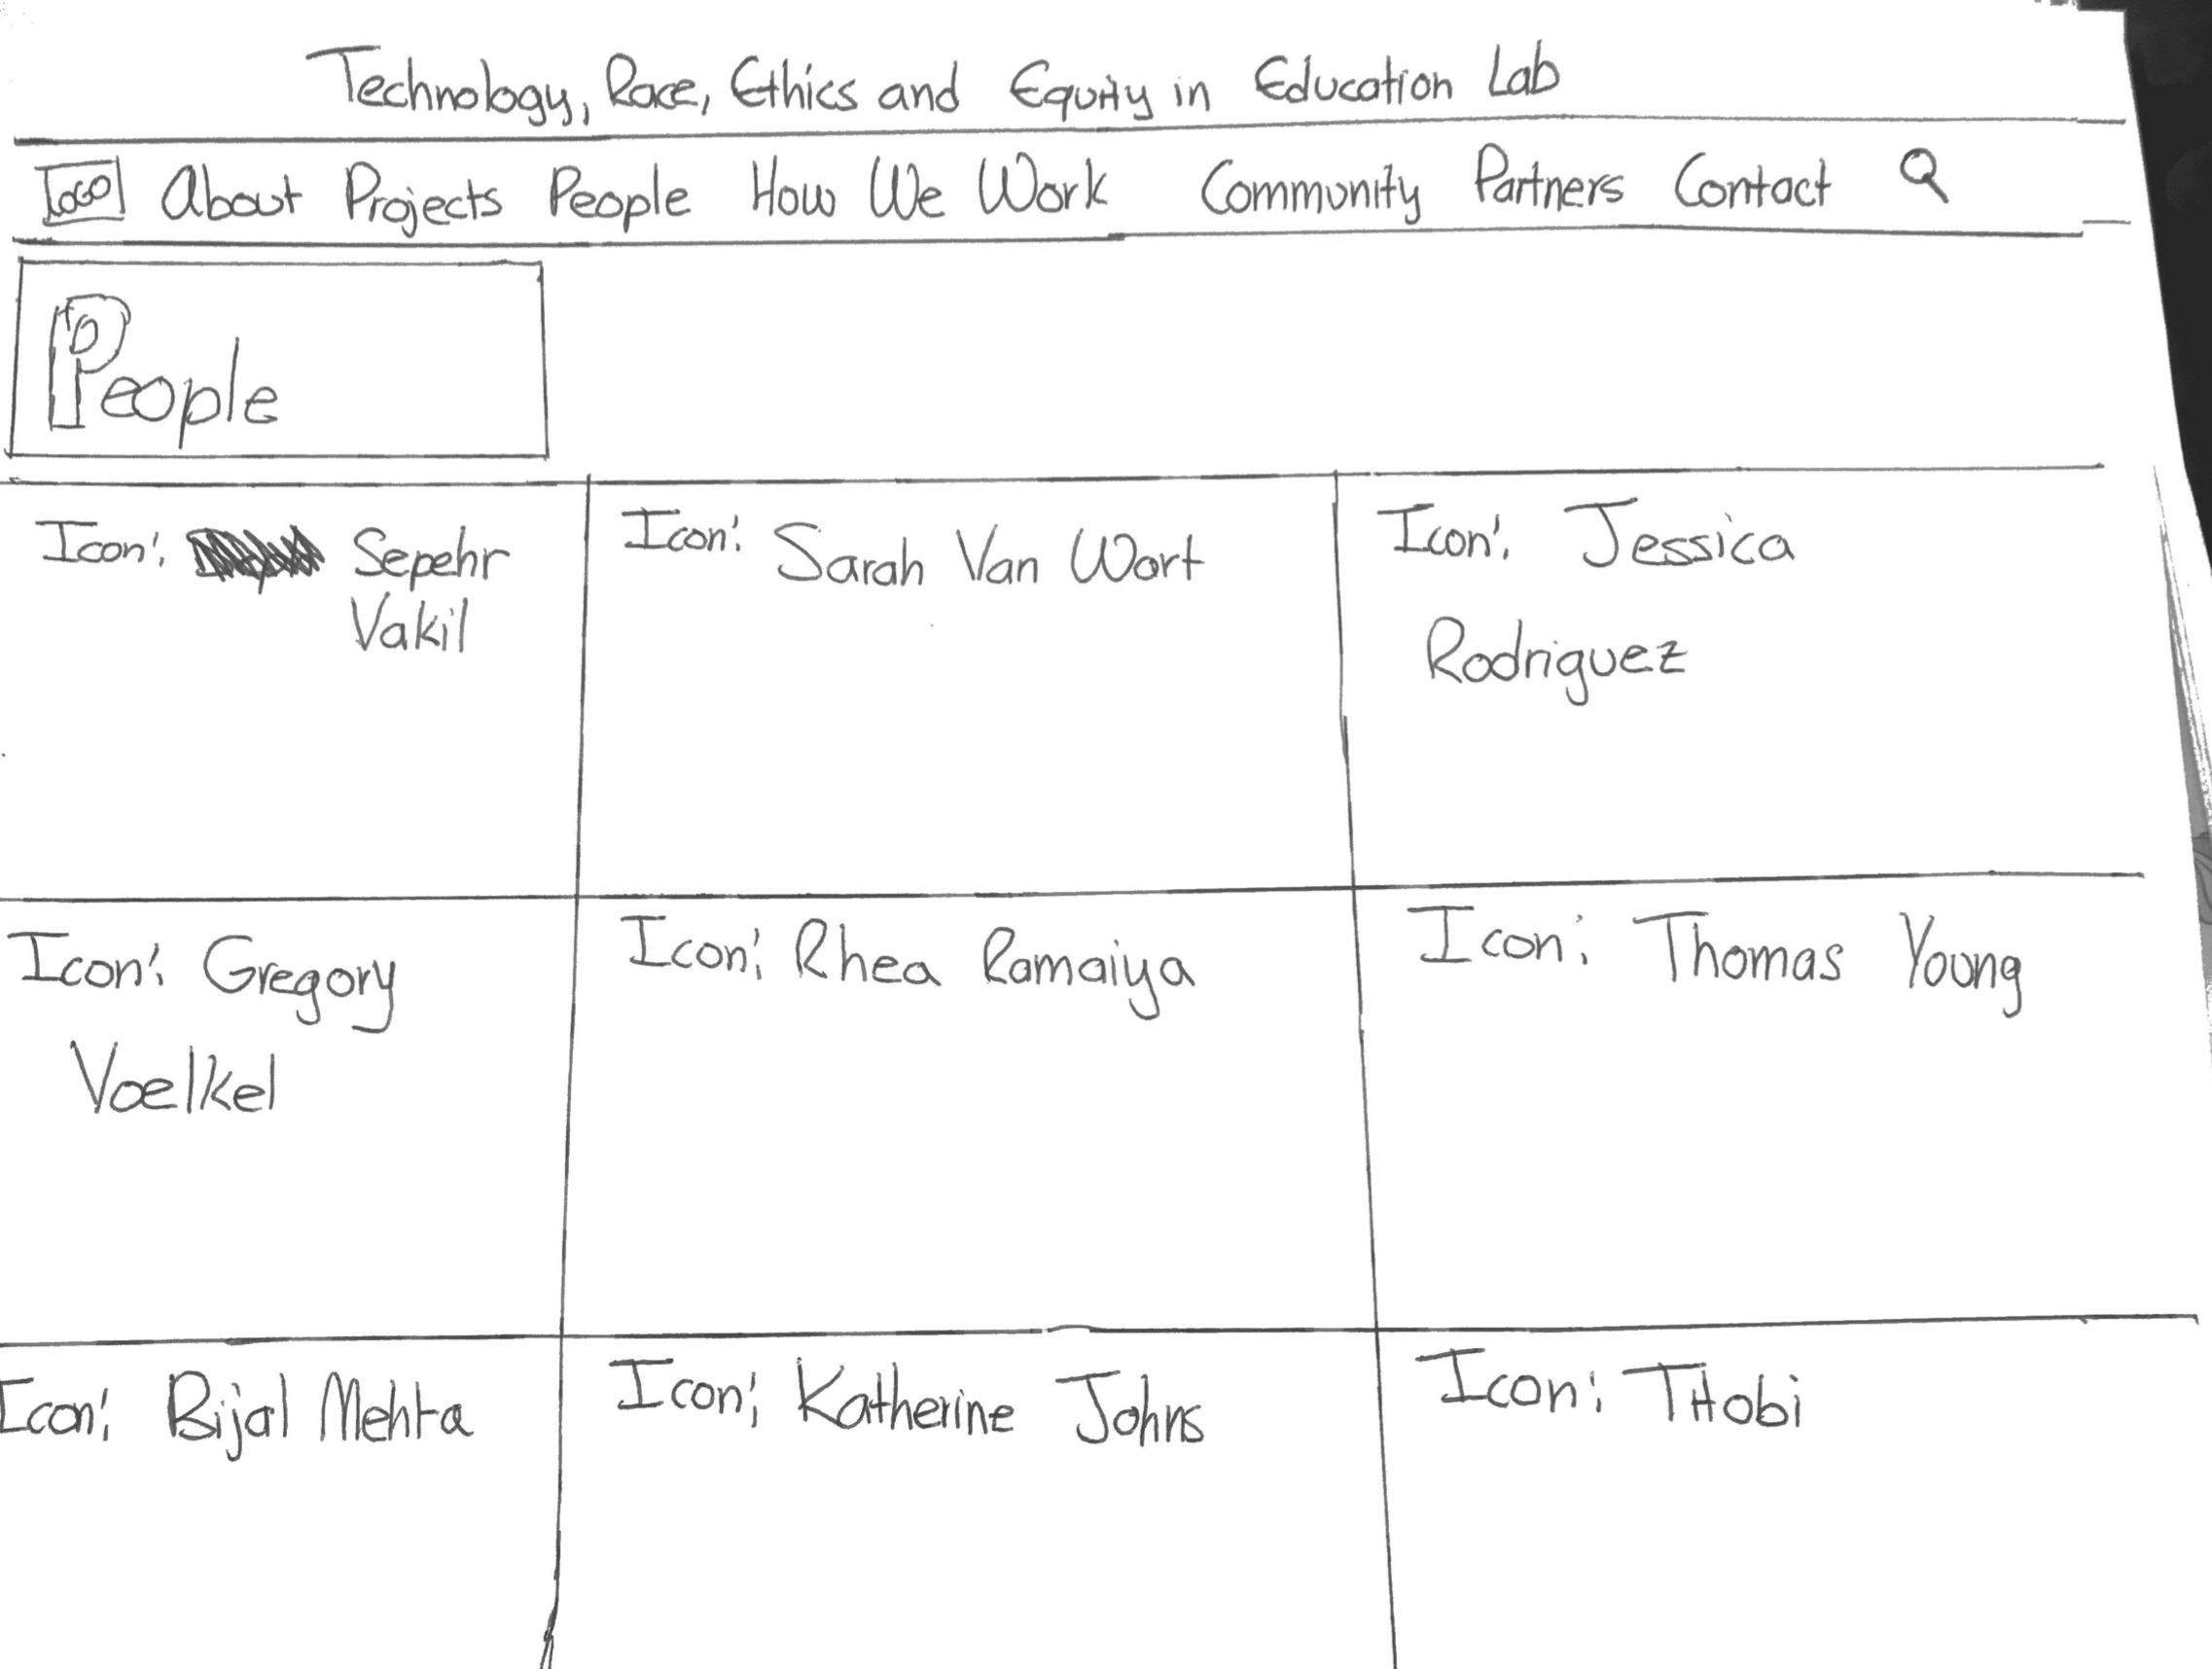 Technology, Race, Ethics and Equity in Education Lab
LOGO About Projects People How We Work Community Partners Contact
People
Icon: Sepehr
Vakil
Icon: Sarah Van Wart
Icon: Jessica
Rodriguez
Icon: Gregory
Voelkel
Icon: Rhea Ramaiya
Icon: Thomas Young
Icon: Bijal Mehta
Icon: Katherine Johns
Icon: THobi